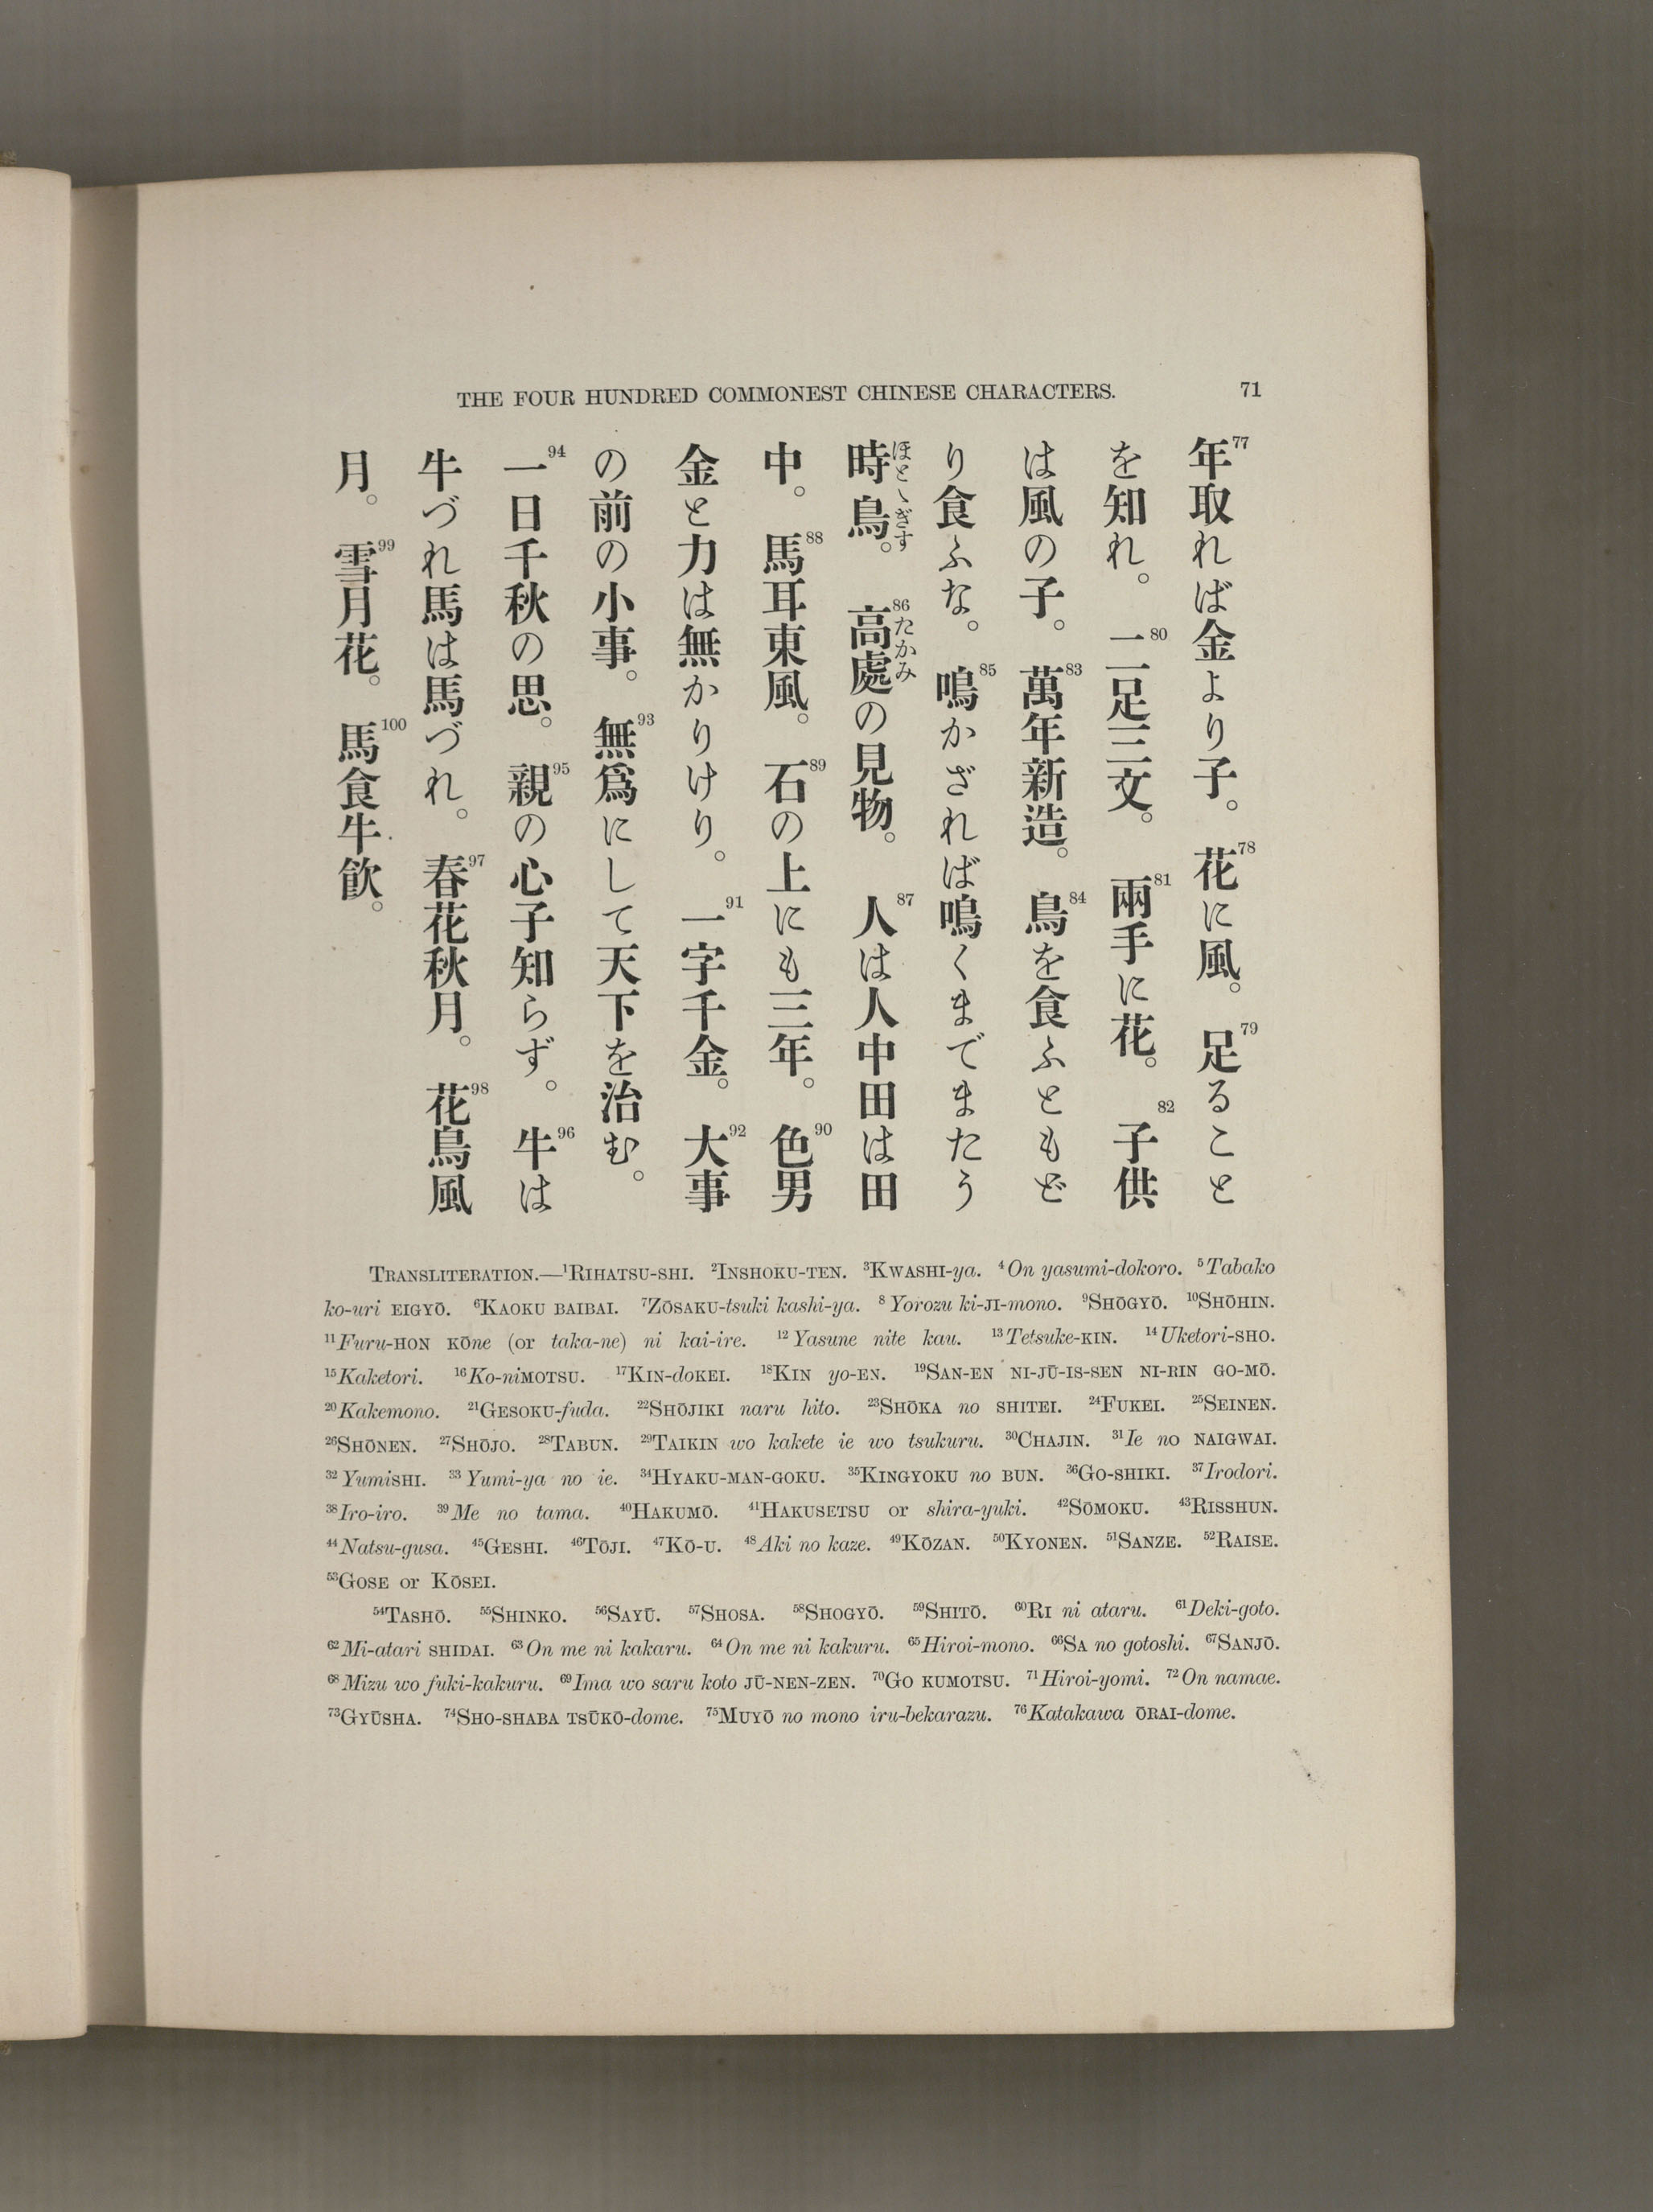 THE FOUR HUNDRED COMMONEST CHINESE CHARACTERS. 71
⁷⁷年取れば金より子。⁷⁸花に風。⁷⁹足ること
を知れ。⁸⁰二足三文。⁸¹兩手に花。⁸²子供
は風の子。⁸³萬年新造。⁸⁴鳥を食ふともど
り食ふな。⁸⁵鳴かざれば鳴くまでまたう
時鳥。⁸⁶高處の見物。⁸⁷人は人中田は田
ほとゝぎす たかみ
中。⁸⁸馬耳東風。⁸⁹石の上にも三年。⁹⁰色男
金と力は無かりけり。⁹¹一字千金。⁹²大事
の前の小事。⁹³無爲にして天下を治む。
⁹⁴一日千秋の思。⁹⁵親の心子知らず。⁹⁶牛は
牛づれ馬は馬づれ。⁹⁷春花秋月。⁹⁸花鳥風
月。⁹⁹雪月花。¹⁰⁰馬食牛飮。
TRANSLITERATION.—¹RIHATSU-SHI. ²INSHOKU-TEN. ³KWASHI-ya. ⁴On yasumi-dokoro. ⁵Tabako
ko-uri EIGYŌ. ⁶KAOKU BAIBAI. ⁷ZŌSAKU-tsuki kashi-ya. ⁸Yorozu ki-JI-mono. ⁹SHŌGYŌ. ¹⁰SHŌHIN.
¹¹Furu-HON KŌne (or taka-ne) ni kai-ire. ¹²Yasune nite kau. ¹³Tetsuke-KIN. ¹⁴Uketori-SHO.
¹⁵Kaketori. ¹⁶Ko-niMOTSU. ¹⁷KIN-doKEI. ¹⁸KIN yo-EN. ¹⁹SAN-EN NI-JŪ-IS-SEN NI-RIN GO-MŌ.
²⁰Kakemono. ²¹GESOKU-fuda. ²²SHŌJIKI naru hito. ²³SHŌKA no SHITEI. ²⁴FUKEI. ²⁵SEINEN.
²⁶SHŌNEN. ²⁷SHŌJO. ²⁸TABUN. ²⁹TAIKIN wo kakete ie wo tsukuru. ³⁰CHAJIN. ³¹Ie no NAIGWAI.
³²YumiSHI. ³³Yumi-ya no ie. ³⁴HYAKU-MAN-GOKU. ³⁵KINGYOKU no BUN. ³⁶GO-SHIKI. ³⁷Irodori.
³⁸Iro-iro. ³⁹Me no tama. ⁴⁰HAKUMŌ. ⁴¹HAKUSETSU or shira-yuki. ⁴²SŌMOKU. ⁴³RISSHUN.
⁴⁴Natsu-gusa. ⁴⁵GESHI. ⁴⁶TŌJI. ⁴⁷KŌ-U. ⁴⁸Aki no kaze. ⁴⁹KŌZAN. ⁵⁰KYONEN. ⁵¹SANZE. ⁵²RAISE.
⁵³GOSE or KŌSEI.
⁵⁴TASHŌ. ⁵⁵SHINKO. ⁵⁶SAYŪ. ⁵⁷SHOSA. ⁵⁸SHOGYŌ. ⁵⁹SHITŌ. ⁶⁰RI ni ataru. ⁶¹Deki-goto.
⁶²Mi-atari SHIDAI. ⁶³On me ni kakaru. ⁶⁴On me ni kakuru. ⁶⁵Hiroi-mono. ⁶⁶SA no gotoshi. ⁶⁷SANJŌ.
⁶⁸Mizu wo fuki-kakuru. ⁶⁹Ima wo saru koto JŪ-NEN-ZEN. ⁷⁰GO KUMOTSU. ⁷¹Hiroi-yomi. ⁷²On namae.
⁷³GYŪSHA. ⁷⁴SHO-SHABA TSŪKŌ-dome. ⁷⁵MUYŌ no mono iru-bekarazu. ⁷⁶Katakawa ŌRAI-dome.